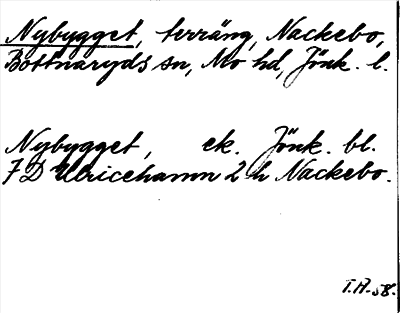 Nybygget, terräng, Nackebo,
Bottnaryds sn, Mo hd, Jönk. l.
Nybygget, ek. Jönk. bl.
7 D Ulricehamn 2 h Nackebo.
T.A.-58.